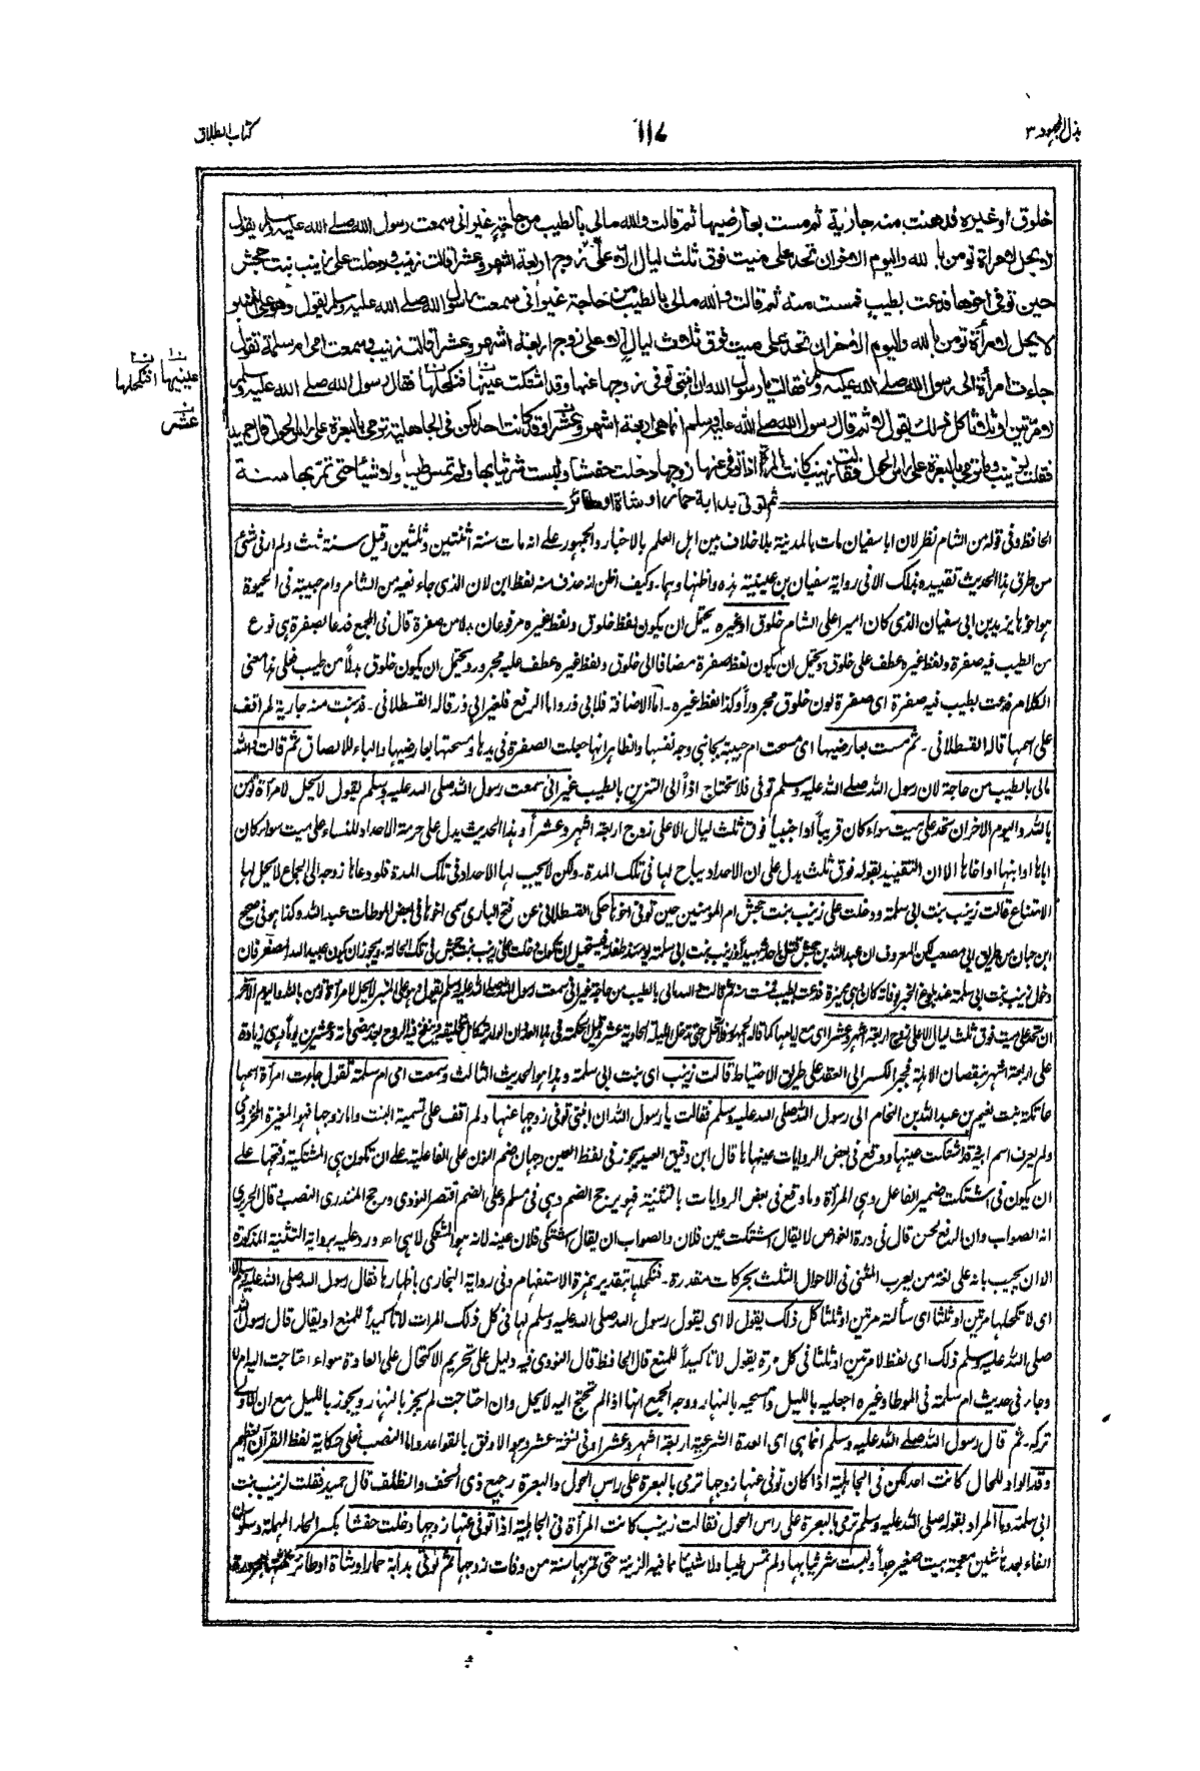 بذل المجهود ٣
١١٧
كتاب الطلاق
خلوق اوغيره فدهنت منه جارية ثم مست بعارضيها ثم قالت والله مالى بالطيب من حاجة غير انى سمعت رسول الله صلے الله عليه وسلم يقول
لا يحل لامرأة تومن بالله واليوم الاخر ان تحد على ميت فوق ثلث ليال الا على زوج اربعة اشهر وعشرا قالت زينب ودخلت على زينب بنت جحش
حين توفى اخوها فدعت بطيب فمست منه ثم قالت والله مالى بالطيب من حاجة غير انى سمعت رسول الله صلے الله عليه وسلم يقول وهو على المنبر
لا يحل لامرأة تومن بالله واليوم الاخر ان تحد على ميت فوق ثلاث ليال الا على زوج اربعة اشهر وعشرا قالت زينب وسمعت امى ام سلمة تقول
جاءت امرأة الى رسول الله صلے الله عليه وسلم فقالت يا رسول الله ان ابنتى توفى زوجها عنها وقد اشتكت عينها فنكحلها فقال رسول الله صلے الله عليه وسلم
لا مرتين او ثلاثا كل ذلك يقول لا ثم قال رسول الله صلے الله عليه وسلم انما هى اربعة اشهر وعشرا وقد كانت احداكن فى الجاهلية ترمى بالبعرة على راس الحول قال حميد
فقلت لزينب وما ترمى بالبعرة على راس الحول فقالت زينب كانت المرأة اذا توفى عنها زوجها دخلت حفشا ولبست شر ثيابها ولم تمس طيبا ولا شيئا حتى تمر بها سنة
ثم توتى بدابة حمار او شاة او طائر
عينيها افنكحلها
عشر
الحافظ وفى قوله من الشام نظر لان ابا سفيان مات بالمدينة بلا خلاف بين اهل العلم بالاخبار والجمهور على انه مات سنة اثنتين وثلثين وقيل سنة ثلث ولم ار فى شئ
من طرق هذا الحديث تقييده بذلك الا فى رواية سفيان بن عيينة هذه واظنها وهما. وكيف اظن انه حذف منه لفظ ابن لان الذى جاء نعيه من الشام وام حبيبة فى الحيوة
هو اخوها يزيد بن ابى سفيان الذى كان اميرا على الشام خلوق اوغيره يحتمل ان يكون لفظ خلوق ولفظ غيره مرفوعان بدلا من صفرة قال فى المجمع فدعا بصفرة هى نوع
من الطيب فيه صفرة ولفظ غيره عطف على خلوق ويحتمل ان يكون لفظ صفرة مضافا الى خلوق ولفظ غيره عطف عليه مجرور ويحتمل ان يكون خلوق بدلا من طيب فعلى هذا معنى
الكلام فدعت بطيب فيه صفرة اى صفرة لون خلوق مجرورا وكذا لفظ غيره - اما الاضافة فلابى ذر واما الرفع فلغير ابى ذر قاله القسطلانى - فدهنت منه جارية لم اقف
على اسمها قاله القسطلانى - ثم مست بعارضيها اى مسحت ام حبيبة بجانبى وجه نفسها والظاهر انها جعلت الصفرة فى يدها ومسحتها بعارضيها والباء للالصاق ثم قالت والله
مالى بالطيب من حاجة لان رسول الله صلے الله عليه وسلم توفى فلا تحتاج اذا الى التزين بالطيب غير انى سمعت رسول الله صلى الله عليه وسلم يقول لا يحل لامرأة تومن
بالله واليوم الاخر ان تحد على ميت سواء كان قريبا او اجنبيا فوق ثلث ليال الا على زوج اربعة اشهر وعشرا وهذا الحديث يدل على حرمة الاحداد للنساء على ميت سواء كان
اباها او ابنها او اخاها الا ان التقييد بقوله فوق ثلث يدل على ان الاحداد يباح لها فى تلك المدة - ولكن لا يجب لها الاحداد فى تلك المدة فلو دعاها زوجها الى الجماع لا يحل لها
الامتناع قالت زينب بنت ابى سلمة ودخلت على زينب بنت جحش ام المؤمنين حين توفى اخوها حكى القسطلانى عن فتح البارى سمى اخوها فى بعض الموطات عبد الله وكذا هو فى صحيح
ابن حبان من طريق ابى مصعب لكن المعروف ان عبد الله بن جحش قتل باحد شهيدا وزينب بنت ابى سلمة يومئذ طفلة فيستحيل ان تكون دخلت على زينب بنت جحش فى تلك الحالة ويجوز ان يكون عبيد الله المصغر فان
دخول زينب بنت ابى سلمة عند بلوغ الخبر بوفاته كان وهى مميزة فدعت بطيب فمست منه ثم قالت والله مالى بالطيب من حاجة غير انى سمعت رسول الله صلے الله عليه وسلم يقول وهو على المنبر لا يحل لامرأة تومن بالله واليوم الآخر
ان تحد على ميت فوق ثلث ليال الا على زوج اربعة اشهر وعشرا اى مع ايامها كما قاله الجمهور فلا تحل حتى تدخل الليلة الحادية عشر قيل الحكمة فى هذا العدد ان الولد يتكامل تخليقه وينفخ فيه الروح بعد مضى مائة وعشرين يوما وهى زيادة
على اربعة اشهر بنقصان الاهلة فجبر الكسر الى العقد على طريق الاحتياط قالت زينب اى بنت ابى سلمة وهذا هو الحديث الثالث وسمعت امى ام سلمة تقول جاءت امرأة اسمها
عاتكة بنت نعيم بن عبد الله بن النحام الى رسول الله صلى الله عليه وسلم فقالت يا رسول الله ان ابنتى توفى زوجها عنها ولم اقف على تسمية البنت واما زوجها فهو المغيرة المخزومى
ولم يعرف اسم ابيه قد اشتكت عينها ووقع فى بعض الروايات عينيها قال ابن دقيق العيد يجوز فى لفظ العين وجهان ضم النون على الفاعلية على ان تكون هى المشتكية وفتحها على
ان يكون فى اشتكت ضمير الفاعل وهى المرأة وما وقع فى بعض الروايات بالتثنية فهو يرجح الضم وهى فى مسلم وعلى الضم اقتصر النووى ورجح المنذرى النصب وقال الحريرى
انه الصواب وان الرفع لحن قال فى درة الغواص لا يقال اشتكت عين فلان والصواب ان يقال اشتكى فلان عينه لانه هو المشتكى لا هى اه ورد عليه برواية التثنية المذكورة
الا ان يجيب بانه على لغة من يعرب المثنى فى الاحوال الثلث بحركات مقدرة - فنكحلها بتقدير همزة الاستفهام وفى رواية البخارى باظهارها فقال رسول الله صلى الله عليه وسلم لا
اى لا تكحلها مرتين او ثلثا اى سألته مرتين او ثلثا كل ذلك يقول لا اى يقول رسول الله صلى الله عليه وسلم لها فى كل ذلك المرات لا تاكيدا للمنع او يقال قال رسول الله
صلى الله عليه وسلم ذلك اى لفظ لا مرتين او ثلثا فى كل مرة يقول لا تاكيدا للمنع قال الحافظ قال النووى فيه دليل على تحريم الاكتحال على الحادة سواء احتاجت اليه ام لا
وجاء فى حديث ام سلمة فى الموطا وغيره اجعليه بالليل وامسحيه بالنهار ووجه الجمع انها اذا لم تحتج اليه لا يحل وان احتاجت لم يجز بالنهار ويجوز بالليل مع ان الاولى
تركه - ثم قال رسول الله صلے الله عليه وسلم انما هى اى العدة الشرعية اربعة اشهر وعشرا وفى نسخة عشر وهو الاوفق بالقواعد واما النصب فعلى حكاية لفظ القرآن العظيم
وقد الواو للحال كانت احداكن فى الجاهلية اذا كان توفى عنها زوجها ترمى بالبعرة على راس الحول والبعرة رجيع ذى الخف والظلف قال حميد فقلت لزينب بنت
ابى سلمة وما المراد بقوله صلى الله عليه وسلم ترمى بالبعرة على راس الحول فقالت زينب كانت المرأة فى الجاهلية اذا توفى عنها زوجها دخلت حفشا بكسر الحاء المهملة وسكون
الفاء بعدها شين معجمة بيت صغير جدا ولبست شر ثيابها ولم تمس طيبا ولا شيئا مما فيه الزينة حتى تمر بها سنة من وفات زوجها ثم توتى بدابة حمار او شاة او طائر